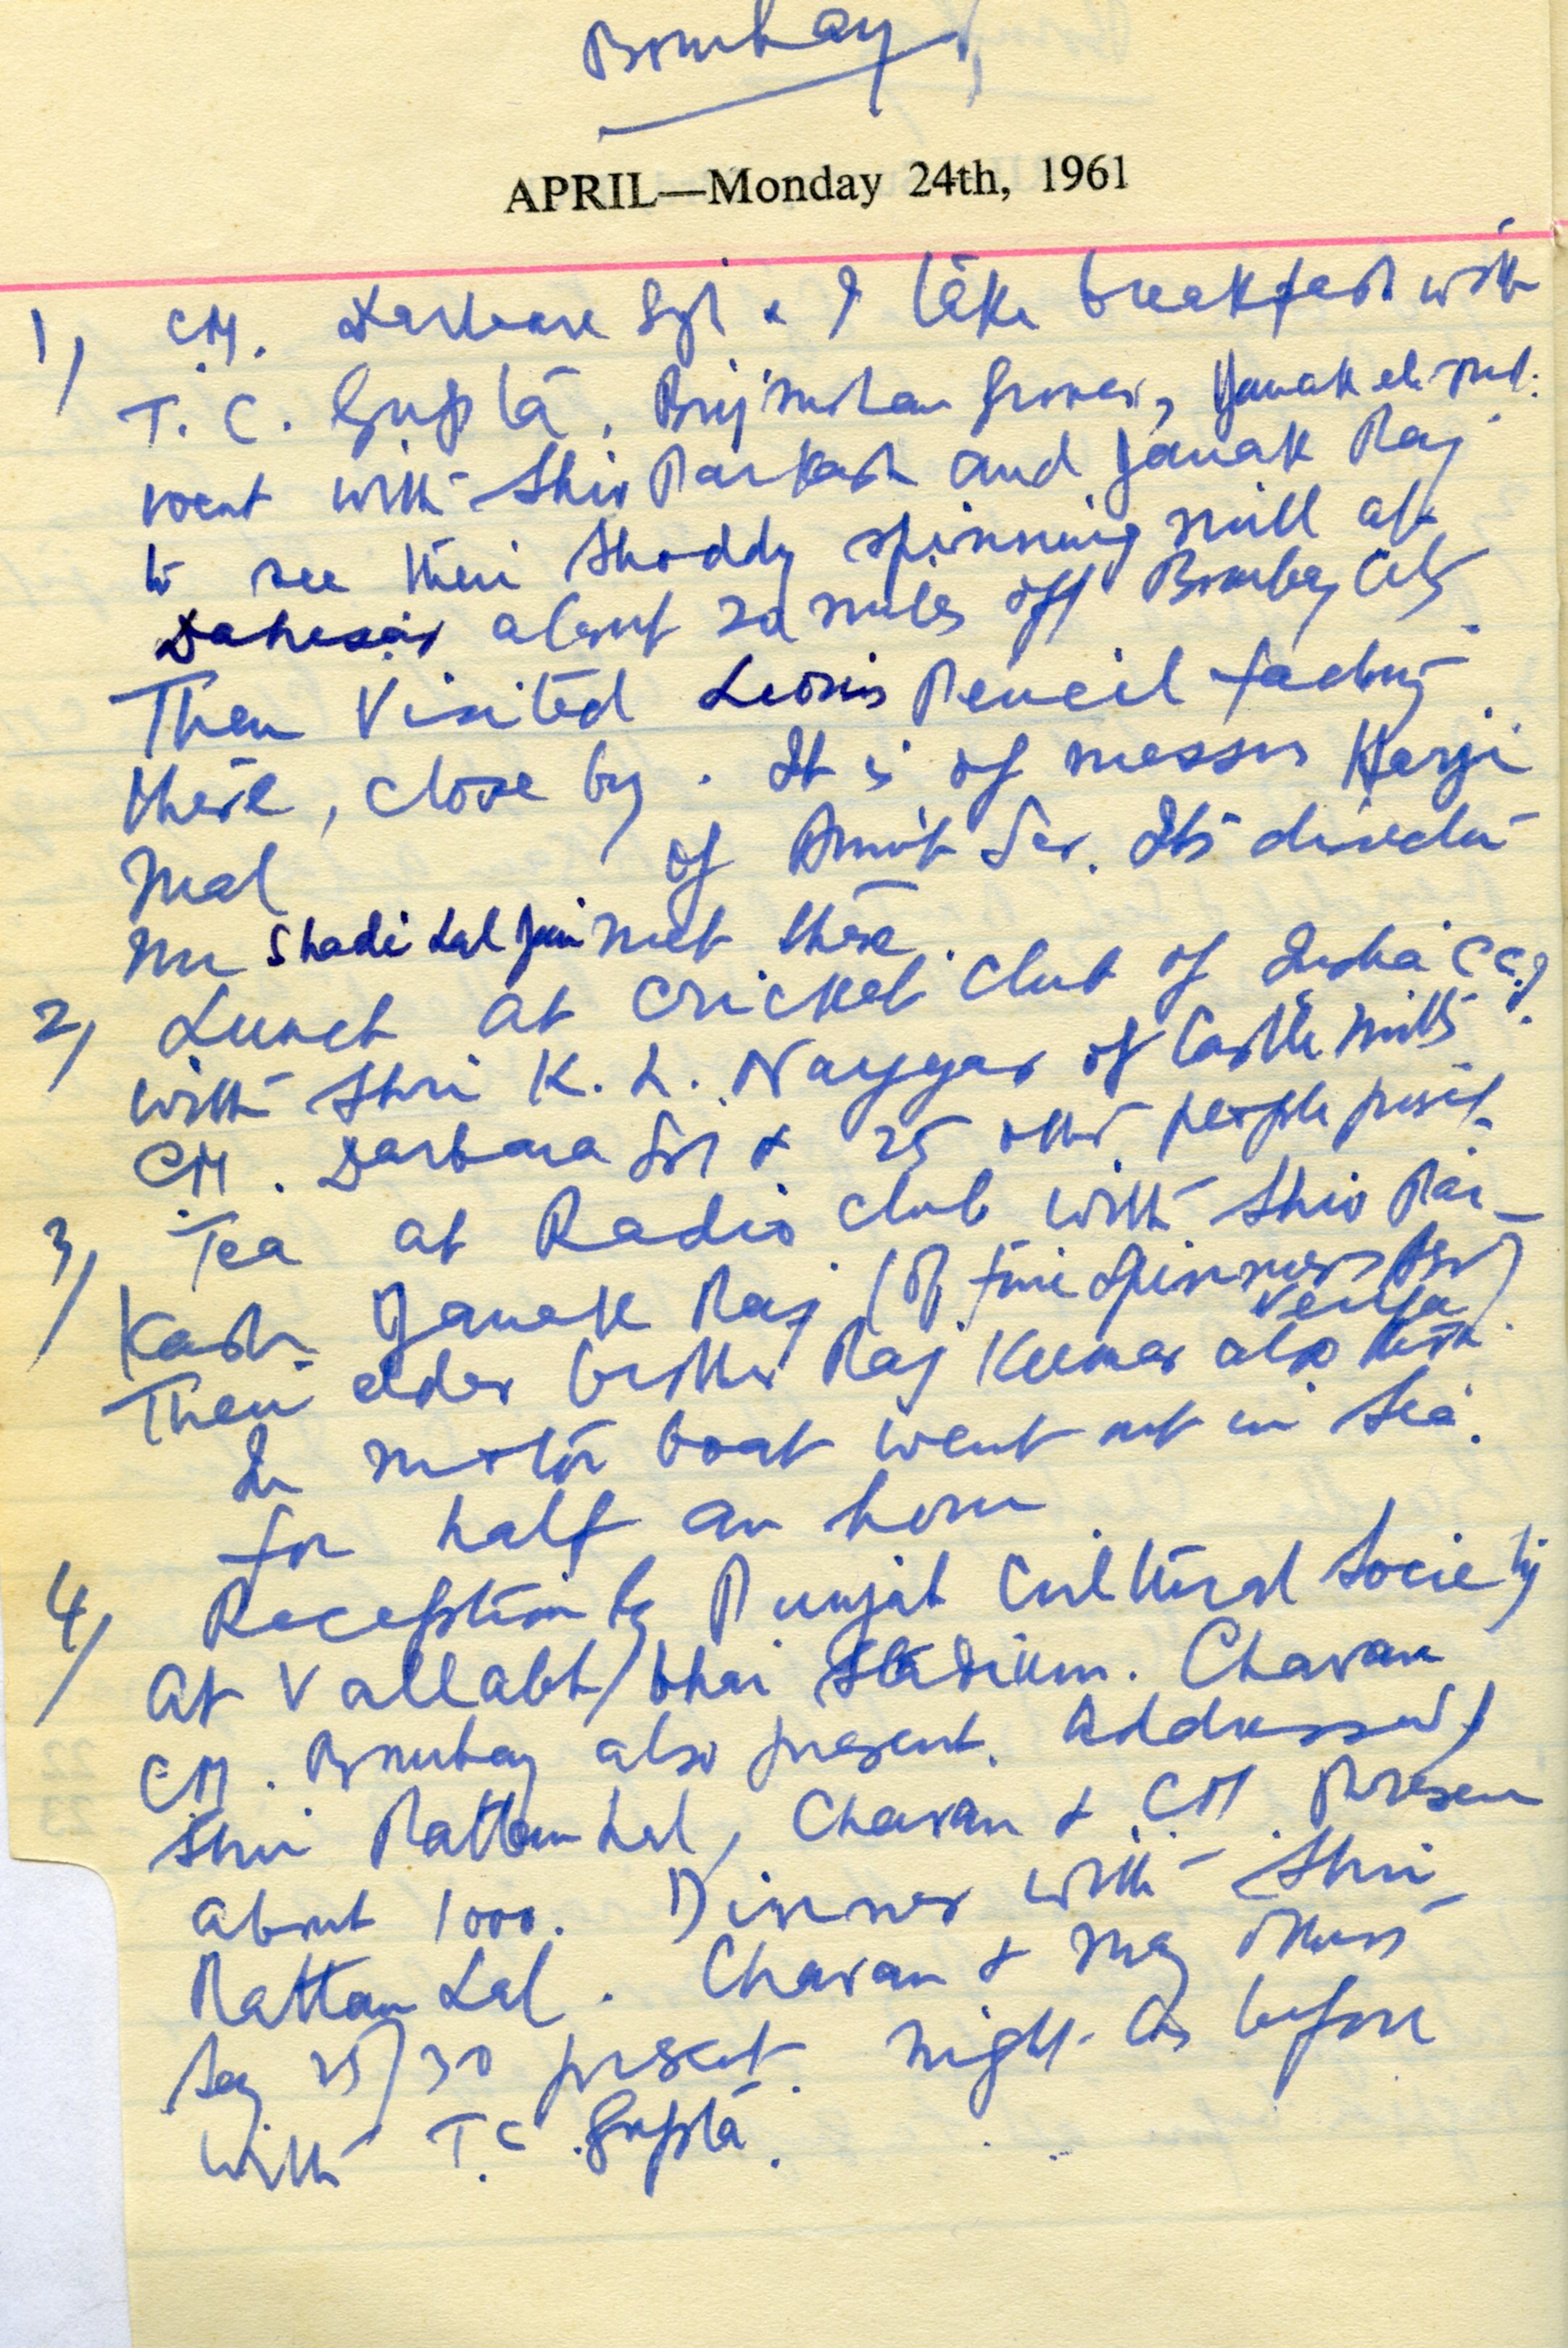 Bombay
APRIL—Monday 24th, 1961
1) C.M. Darbara Sgh & I take breakfast with
T. C. Gupta, Brijmohan Grover, Janak
went with Shiv Parkash and Janak Raj
to see their Shoddy spinning mill at
Dahesar about 20 miles off Bombay City
Then Visited Lions Pencil factory
there, close by. It is of messrs Harji
Mal of Amrit Sar. Its director
Mr Shadi Lal Jain met there.
2) Lunch at Cricket Club of India CCI
with Shri K. L. Nayyar of Castle Mills
C.M. Darbara Sgh & 25 other people presit
3) Tea at Radio Club with Shiv Par-
Kash Janak Raj (of Fine Spinners
Versova)
Their elder brother Raj Kumar also
In motor boat went out in Sea.
for half an hour
4) Reception by Punjab Cultural Society
at Vallabh/bhai Stadium. Chavan
C.M. Bombay also present. Addressed
Shri Rattan Lal, Chavan & C.M. Presen
about 1000. Dinner with Shri
Rattan Lal. Chavan & many others
Say 25/30 present. Night as before
with T.C. Gupta.